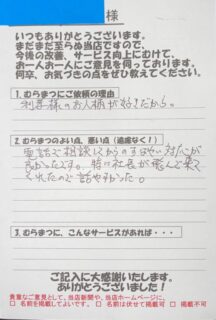 様
いつもありがとうございます。
まだまだ至らぬ当店ですので、
今後の改善、サービス向上にむけて、
お一人お一人にご意見を伺っております。
何卒、お気づきの点をぜひ教えてください。
1. むらまつにご依頼の理由
様のお人柄が好きだから。
2. むらまつのよい点、悪い点（遠慮なく！）
電話で相談してからのすばやい対応が
良かったです。特に社長が飛んで来て
くれたので話やすかった。
3. むらまつに、こんなサービスがあれば・・・
ご記入に大感謝いたします。
ありがとうございました！
貴重なご意見として、当店新聞や、当店ホームページに、
□ 名前を掲載してよいです。 □ 名前は伏せて掲載可 □ 掲載不可